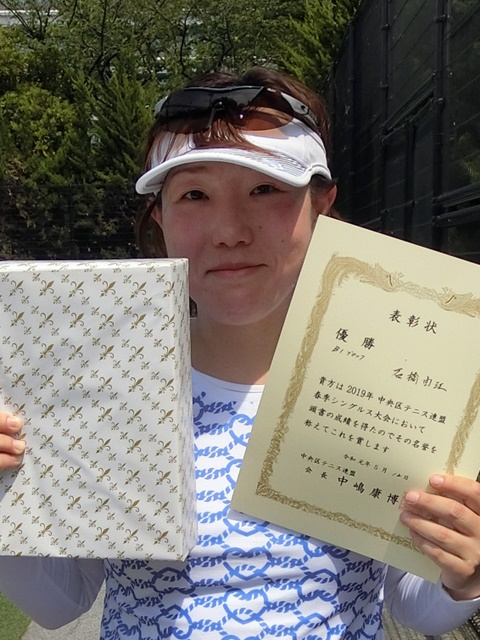 表彰状
優勝
石橋由江
貴方は2019年 中央区テニス連盟
春季シングルス大会において
頭書の成績を得たのでその名誉を
称えてこれを賞します
令和元年5月
中央区テニス連盟
会長 中嶋康博